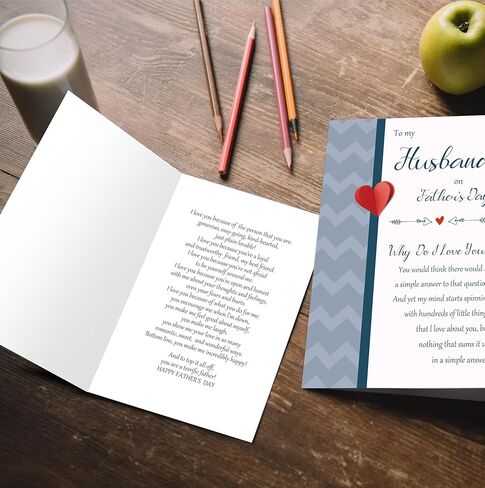 I love you because of the person that you are;
generous, easy going, kind hearted,
just plain lovable!
I love you because you're a loyal
and trustworthy friend, my best friend.
I love you because you're not afraid
to be yourself around me
I love you because you're open and honest
with me about your thoughts and feelings,
even your fears and hurts.
I love you because of what you do for me:
you encourage me when I'm down,
you make me feel good about myself,
you make me laugh,
you show me your love in so many
romantic, sweet, and wonderful ways.
Bottom line, you make me incredibly happy!
And to top it all off,
you are a terrific father!
HAPPY FATHER'S DAY
To my
Husband
on
Father's Day
Why Do I Love You
You would think there would
a simple answer to that question
And yet my mind starts spinning
with hundreds of little thing
that I love about you, bu
nothing that sums it u
in a simple answe